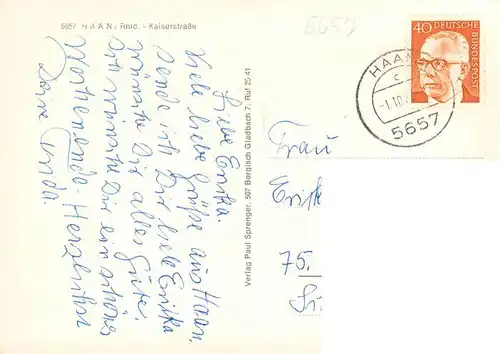 5657 HAAN, Rhld. - Kaiserstraße
5657
Liebe Erika.
Viele liebe Grüße aus Haan,
sende ich Dir liebe Erika
wünsche Dir alles Gute.
Ich wünsche Dir ein schönes
Wochenende. Herzlichst
Deine Linda
Verlag Paul Sprenger, 507 Bergisch Gladbach 7, Ruf 25 41
40 DEUTSCHE BUNDESPOST
HAAN
c
-1.10.
5657
Frau
Erika
75.